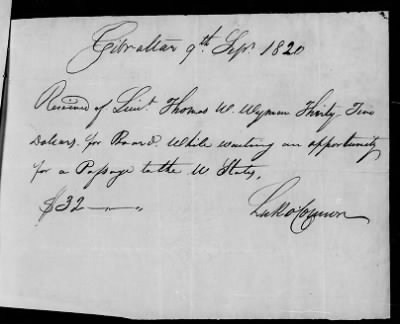 Gibraltar 9th Sepr. 1820
Received of Lieut. Thomas W. Wyman Thirty Two
Dollars. for Board. While waiting an opportunity
for a Passage to the U States,
$32